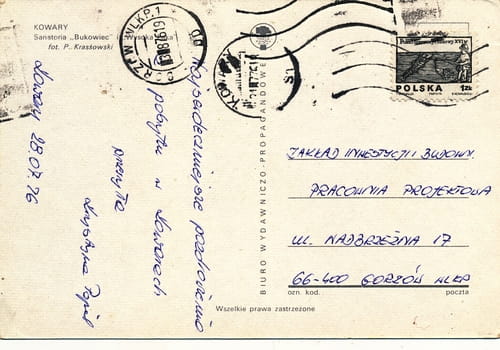 KOWARY
Sanatoria „Bukowiec" i „Wysoka Łąka"
fot. P. Krassowski
Najserdeczniejsze pozdrowienia
z pobytu w Kowarach
przesyła
Krystyna
Kowary 28.07.76
BIURO WYDAWNICZO-PROPAGANDOWE
Wszelkie prawa zastrzeżone
GORZÓW WLKP. 1
KOWARY
POLSKA
1 ZŁ
ZAKŁAD INWESTYCJI I BUDOWY
PRACOWNIA PROJEKTOWA
UL. NADBRZEŻNA 17
66-400 GORZÓW WLKP
ozn. kod.
poczta